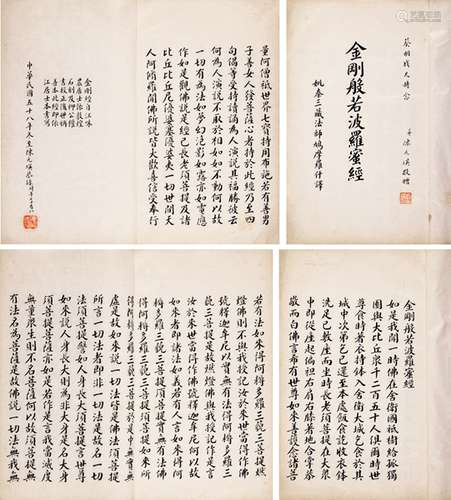 金剛般若波羅蜜經
姚秦三藏法師鳩摩羅什譯
敬贈
量阿僧祇世界七寶持用布施若有善男
子善女人發菩薩心者持於此經乃至四
句偈等受持讀誦為人演說其福勝彼云
何為人演說不取於相如如不動何以故
一切有為法如夢幻泡影如露亦如電應
作如是觀佛說是經已長老須菩提及諸
比丘比丘尼優婆塞優婆夷一切世間天
人阿脩羅聞佛所說皆大歡喜信受奉行
中華民國五十八年
金剛般若波羅蜜經
如是我聞一時佛在舍衛國祇樹給孤獨
園與大比丘眾千二百五十人俱爾時世
尊食時著衣持鉢入舍衛大城乞食於其
城中次第乞已還至本處飯食訖收衣鉢
洗足已敷座而坐時長老須菩提在大眾
中即從座起偏袒右肩右膝著地合掌恭
敬而白佛言希有世尊如來善護念諸菩
若有法如來得阿耨多羅三藐三菩提燃
燈佛則不與我授記汝於來世當得作佛
號釋迦牟尼以實無有法得阿耨多羅三
藐三菩提是故燃燈佛與我授記作是言
汝於來世當得作佛號釋迦牟尼何以故
如來者即諸法如義若有人言如來得阿
耨多羅三藐三菩提須菩提實無有法佛
得阿耨多羅三藐三菩提須菩提如來所
得阿耨多羅三藐三菩提於是中無實無
虛是故如來說一切法皆是佛法須菩提
所言一切法者即非一切法是故名一切
法須菩提譬如人身長大須菩提言世尊
如來說人身長大則為非大身是名大身
須菩提菩薩亦如是若作是言我當滅度
無量眾生則不名菩薩何以故須菩提實無
有法名為菩薩是故佛說一切法無我無